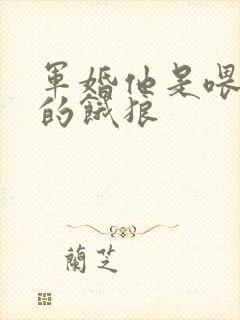 軍婚他是喂
的餓狼
蘭芝